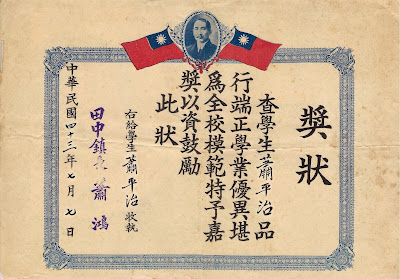 獎狀
查學生蕭平治品
行端正學業優異堪
為全校模範特予嘉
獎以資鼓勵
此狀
右給學生蕭平治收執
田中鎮長蕭鴻
中華民國四十三年七月七日